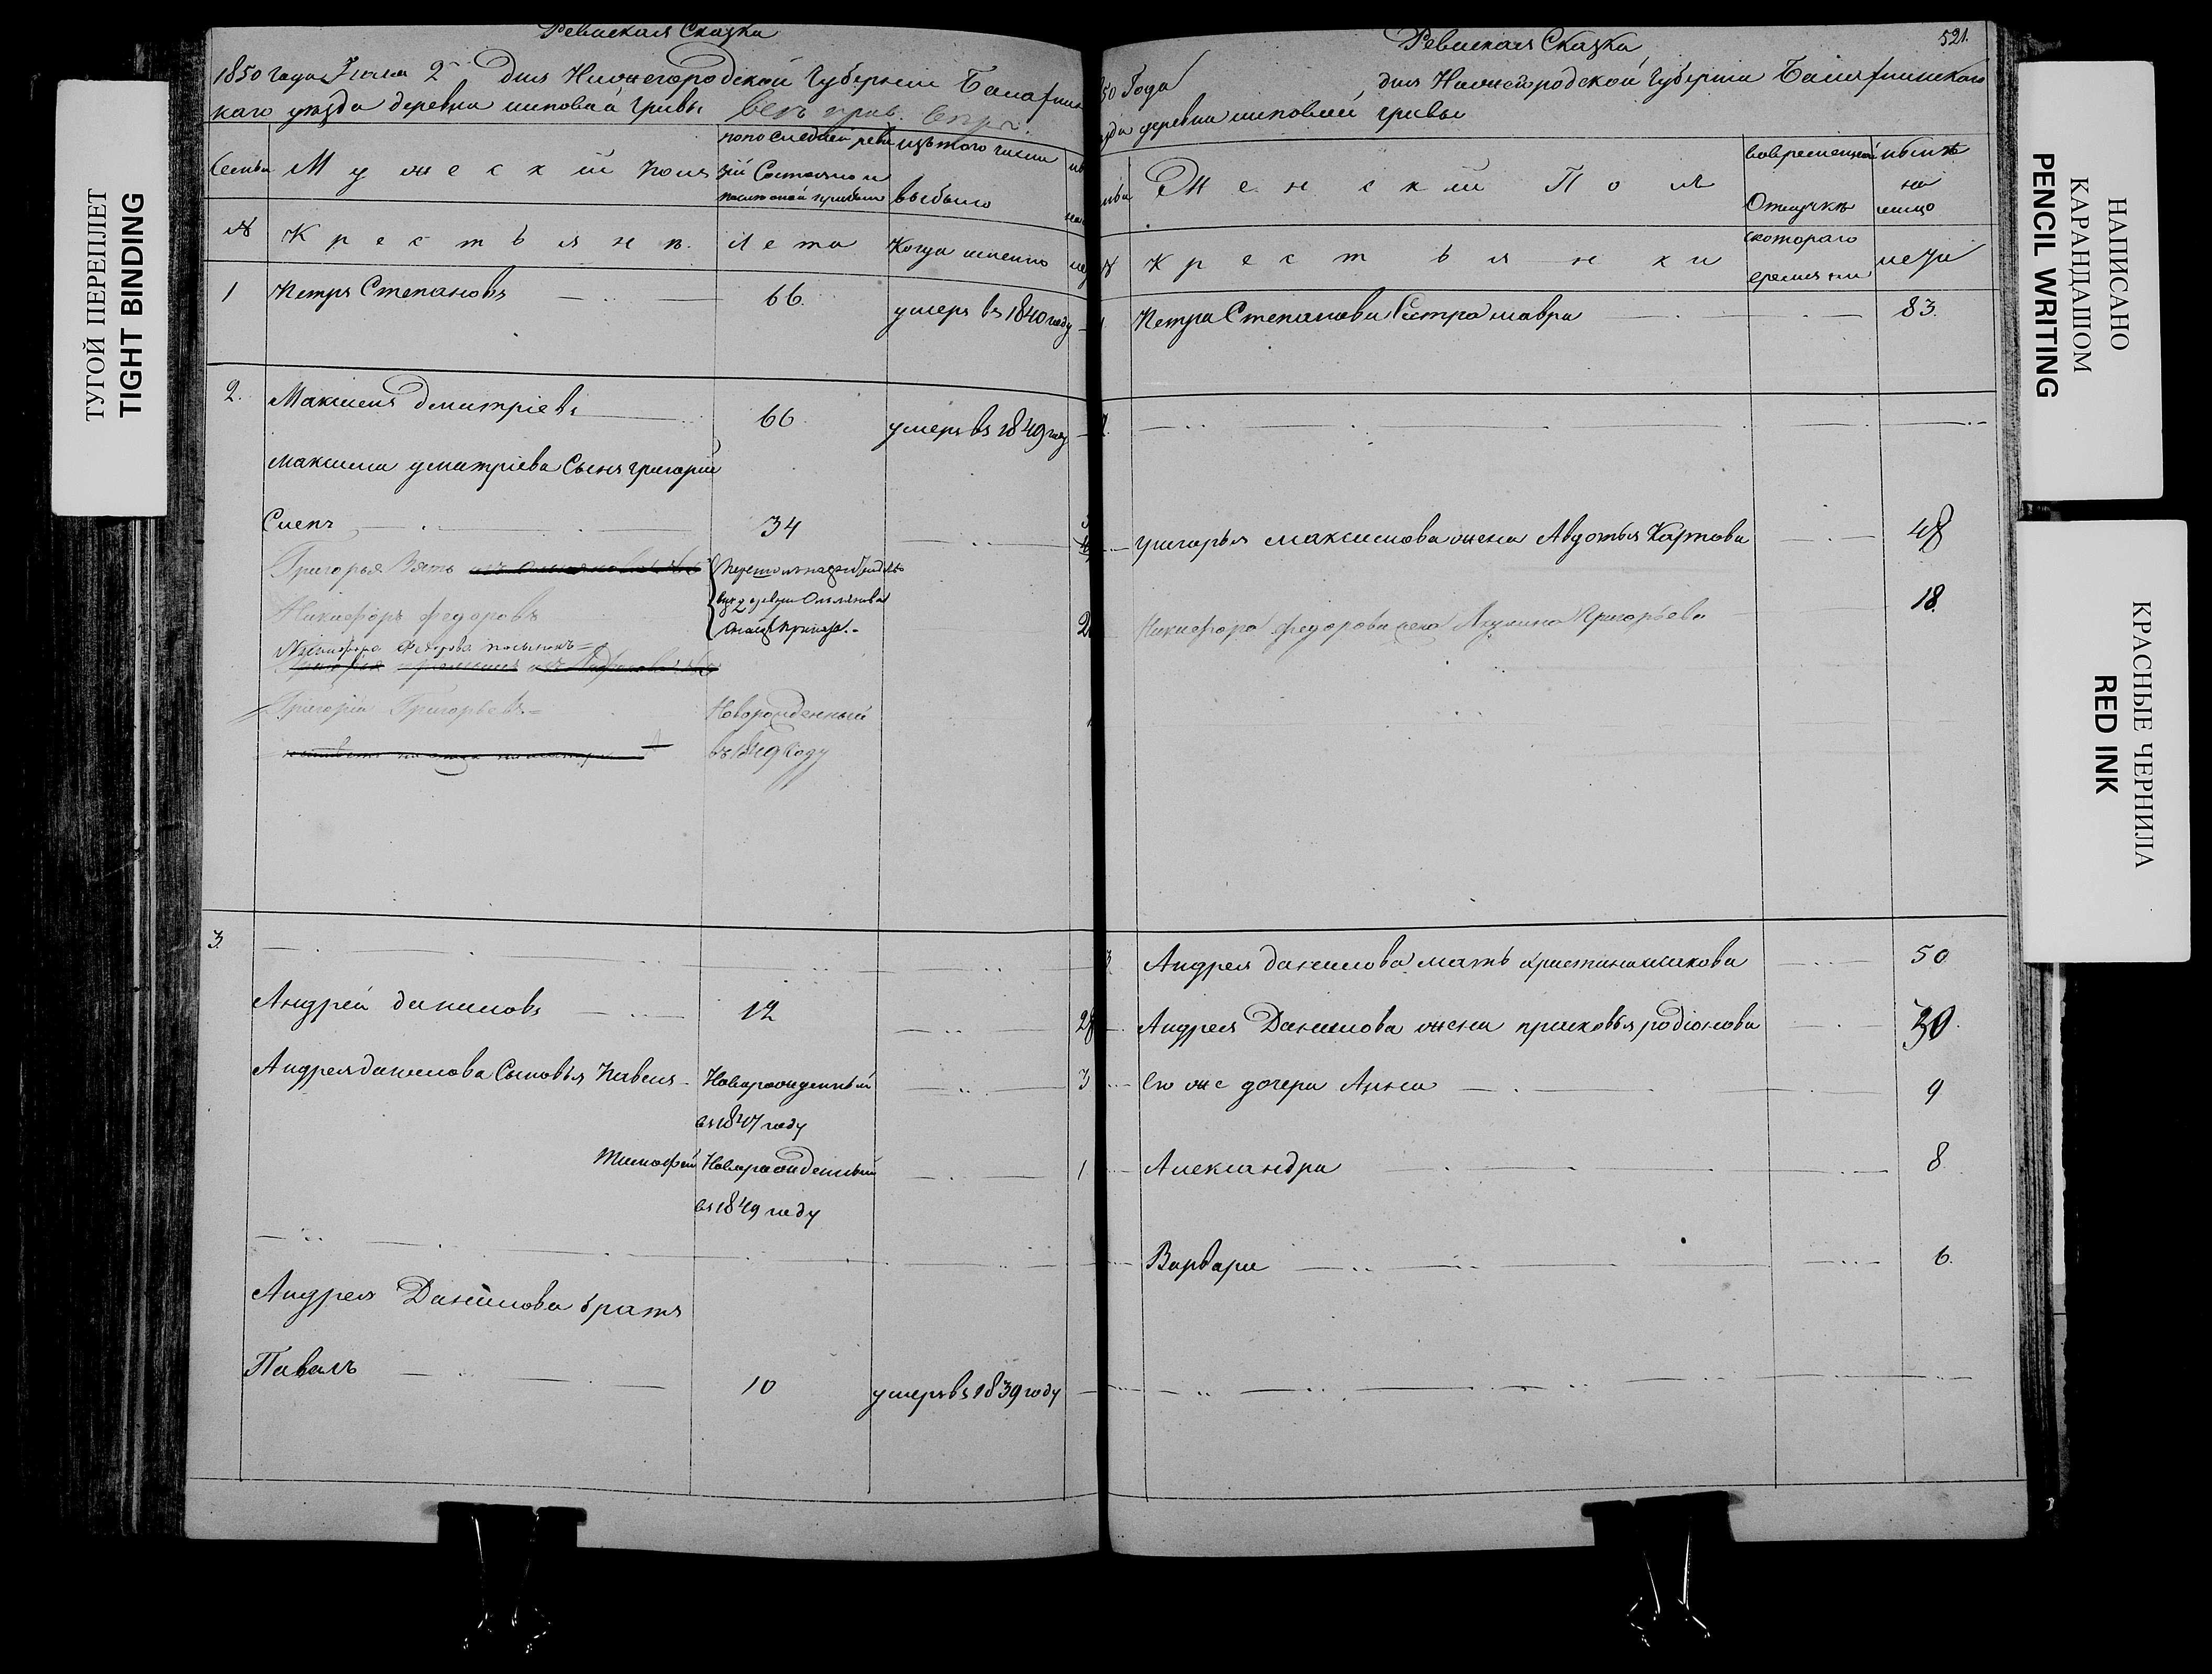 Ревиская Сказка
1850 года Июля 2 дня Нижегородской Губернии Балахнин
каго уезда деревни липовой гривы
Семьи
Мужеский полъ
по последней реви
зіи Состояло и
после оной прибыло
изъ того числа
выбыло
№
Крестьяне
лета
Когда именно
1 Петръ Степановъ 66. умеръ въ 1840 году
2. Максимъ дмитріевъ 66 умеръ въ 1849 году
максима дмитріева Сынъ григорій
Слепъ 34
Григорья Зять
Никифоръ федоровъ
Никифора Федорова пасынокъ
Григорій Григорьевъ Новорожденный
въ 1849 Году
3.
Андрей даниловъ 12 28
Андрея данилова Сыновья Павелъ Новорожденный 3
въ 1847 году
Тимофей Новорожденный 1
въ 1849 году
Андрея Данилова братъ
Павалъ 10 умеръ въ 1839 году
Ревиская Сказка
521.
50 Года дня Нижегородской Губерніи Балахнинскаго
деревни липовой гривы
Женскій Полъ
вовременной
Отлучке
ныне
на
лицо
№
Крестьянки
скотораго
времени
лети
Петра Степанова Сестра мавра 83.
григорья максимова жена Авдотья Карпова 48
Никифора федорова жена Акулина Григорьева 18.
Андрея данилова мать 50
Андрея Данилова жена прасковья родіонова 30.
Ево же дочери Анна 9
Александра 8
Варвара 6.
ТУГОЙ ПЕРЕПЛЕТ
TIGHT BINDING
НАПИСАНО
КАРАНДАШОМ
PENCIL WRITING
КРАСНЫЕ ЧЕРНИЛА
RED INK